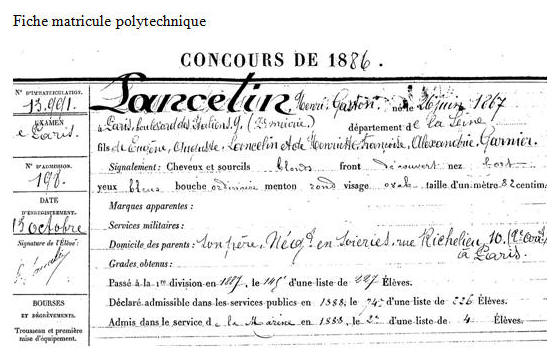 Fiche matricule polytechnique
CONCOURS DE 1886.
N° D'IMMATRICULATION.
13.991.
EXAMEN
de Paris.
N° D'ADMISSION.
198.
DATE
D'ENREGISTREMENT.
15 octobre
Signature de l'Élève:
BOURSES
ET DÉGRÈVEMENTS.
Trousseau et première
mise d'équipement.
Lancelin, Henri Gaston, né le 26 juin 1867
à Paris, boulevard des Italiens 9, (2e mairie) département de la Seine
fils de Eugène, Auguste, Lancelin et de Henriette, Françoise, Alexandrie, Garnier.
Signalement: Cheveux et sourcils blonds front découvert nez
yeux bleus bouche ordinaire menton rond visage ovale taille d'un mètre 82 centim.
Marques apparentes:
Services militaires:
Domicile des parents: Son père, Négt en Soieries, rue Richelieu, 10. (1er arrt)
à Paris.
Grades obtenus:
Passé à la 1re division en 1887, le 145e d'une liste de 227 Élèves.
Déclaré admissible dans les services publics en 1888, le 74e d'une liste de 226 Élèves.
Admis dans le service de la Marine en 1888, le 2e d'une liste de 4 Élèves.